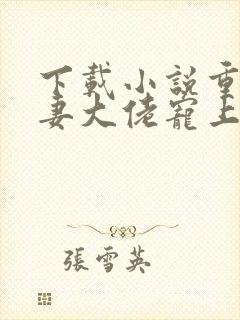 下載小說重
妻大佬寵上
張雪英